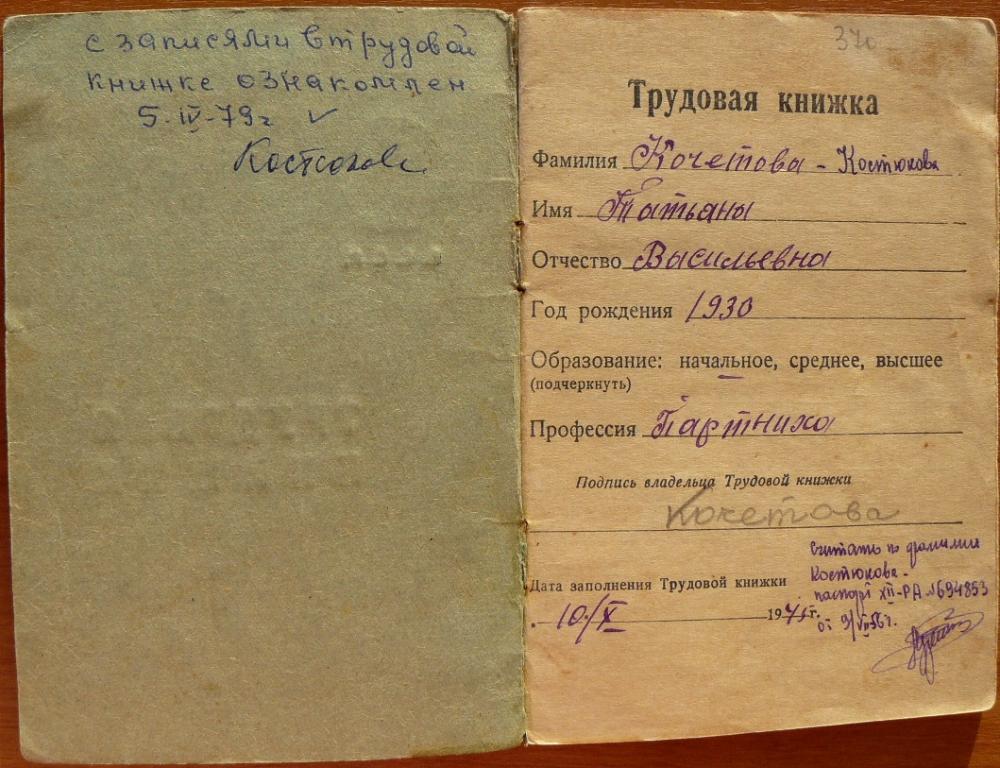 с записями в трудовой
книжке ознакомлен
5-IV-79г ✓
Костюкова
370
Трудовая книжка
Фамилия Кочетова - Костюкова
Имя Татьяна
Отчество Васильевна
Год рождения 1930
Образование: начальное, среднее, высшее
(подчеркнуть)
Профессия
Подпись владельца Трудовой книжки
Кочетова
Считать по фамилии
Костюкова -
паспорт XII-РА №694853
от 9/VII 56 г.
Дата заполнения Трудовой книжки
10/X 194 г.